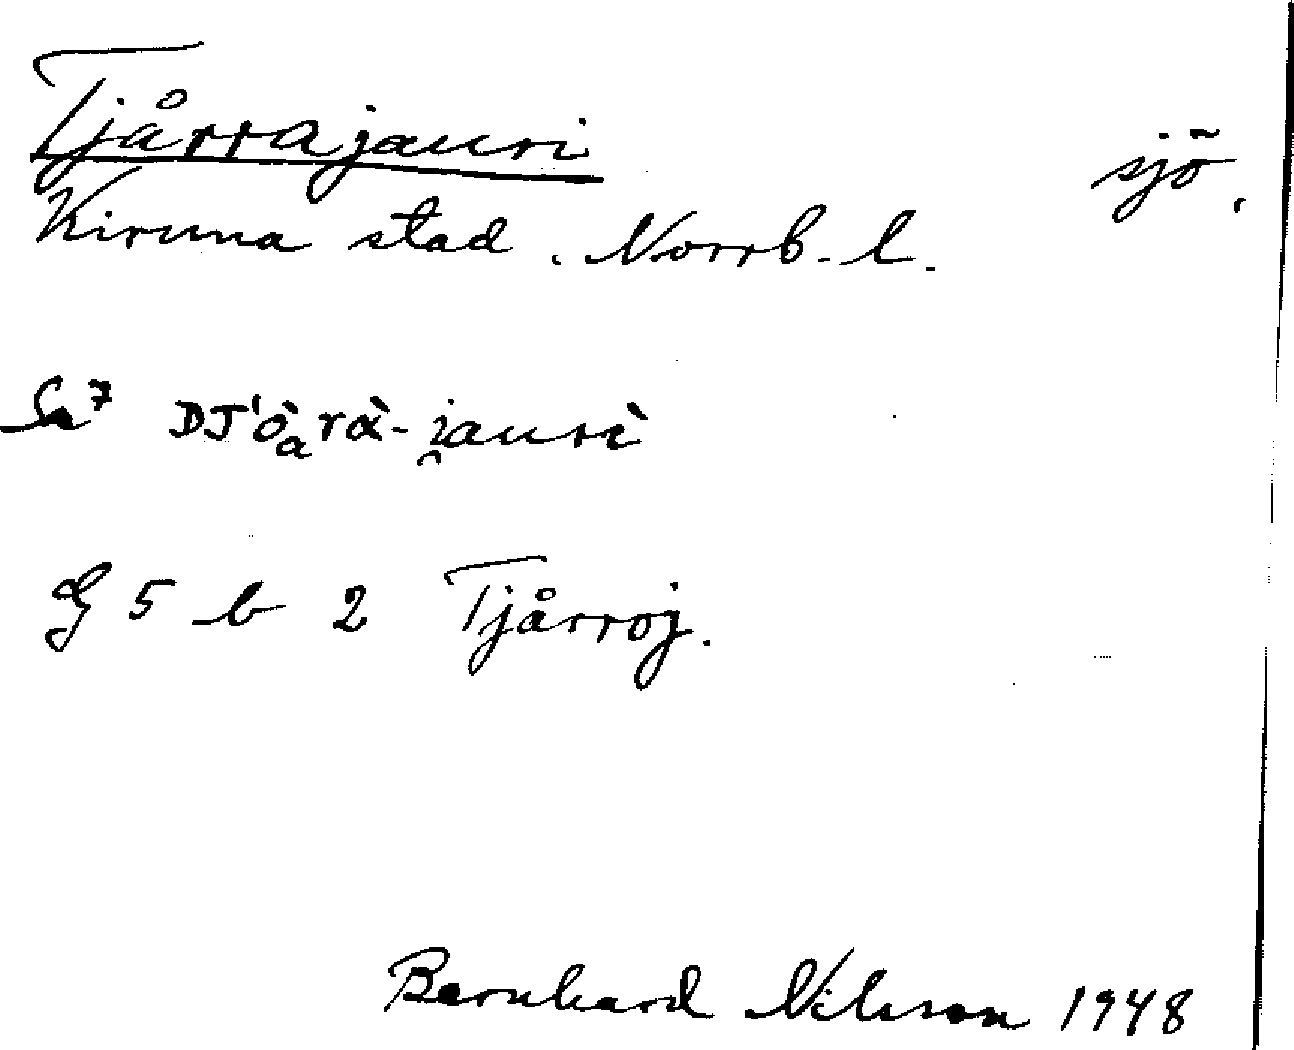 Tjårrajauri sjö.
Kiruna stad. Norrb. l.
Sa⁷ DJ'òₐrὰ-i̯aurè
G 5 b 2 Tjårroj.
Bernhard Nilsson 1948